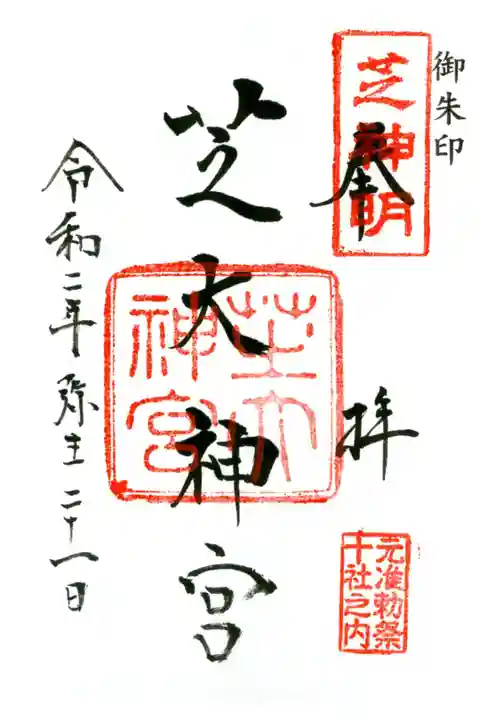 御朱印
芝神明
奉拝
元准勅祭
十社之内
芝大神宮
芝大
神宮
令和二年弥生二十一日